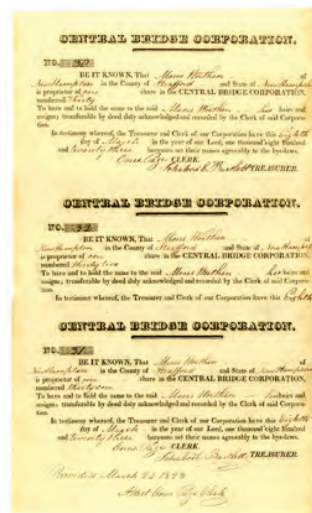 CENTRAL BRIDGE CORPORATION.
NO. 30
BE IT KNOWN, That Moses Worthen of
New Hampton in the County of Strafford and State of New Hampshire
is proprietor of one share in the CENTRAL BRIDGE CORPORATION,
numbered Thirty
To have and to hold the same to the said Moses Worthen his heirs and
assigns; transferable by deed duly acknowledged and recorded by the Clerk of said Corpora-
tion.
In testimony whereof, the Treasurer and Clerk of our Corporation have this Eighth
day of March in the year of our Lord, one thousand eight hundred
and twenty three hereunto set their names agreeably to the by-laws.
CLERK.
TREASURER.
CENTRAL BRIDGE CORPORATION.
NO. 32
BE IT KNOWN, That Moses Worthen of
New Hampton in the County of Strafford and State of New Hampshire
is proprietor of one share in the CENTRAL BRIDGE CORPORATION,
numbered thirty two
To have and to hold the same to the said Moses Worthen his heirs and
assigns; transferable by deed duly acknowledged and recorded by the Clerk of said Corpora-
tion.
In testimony whereof, the Treasurer and Clerk of our Corporation have this Eighth
CENTRAL BRIDGE CORPORATION.
NO. 31
BE IT KNOWN, That Moses Worthen of
New Hampton in the County of Strafford and State of New Hampshire
is proprietor of one share in the CENTRAL BRIDGE CORPORATION,
numbered thirty one
To have and to hold the same to the said Moses Worthen his heirs and
assigns; transferable by deed duly acknowledged and recorded by the Clerk of said Corpora-
tion.
In testimony whereof, the Treasurer and Clerk of our Corporation have this Eighth
day of March in the year of our Lord, one thousand eight hundred
and twenty three hereunto set their names agreeably to the by-laws.
CLERK.
TREASURER.
Recorded March 1823
Attest Clerk